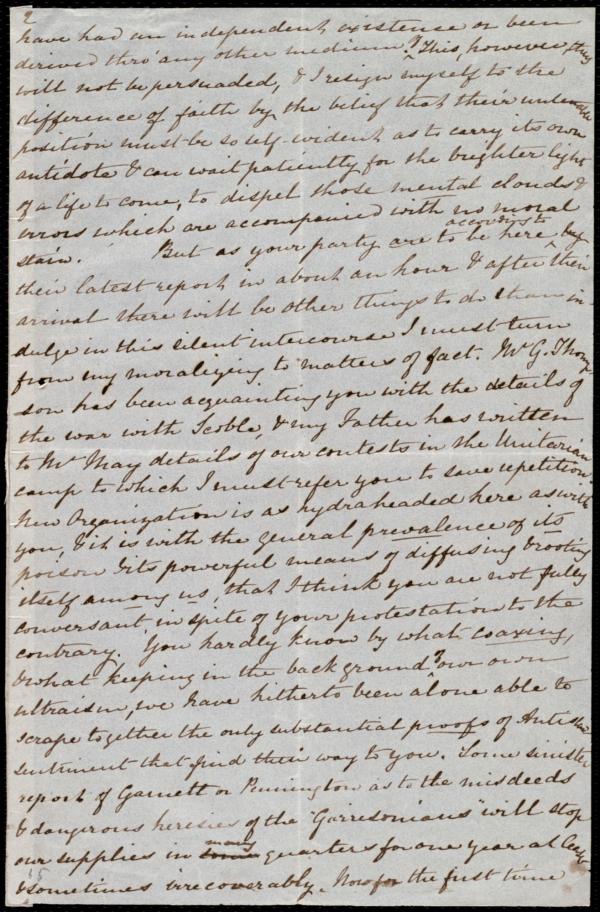 2
have had an independent existense or been
derived thro' any other medium? This, however, they
will not be persuaded, & I resign myself to the
difference of faith by the belief that their untenable
position must be so self-evident as to carry its own
antidote & can wait patiently for the brighter light
of a life to come, to dispel those mental clouds &
errors which are accompanied with no moral
stain. But as your party are to be here by
according to
their latest report in about an hour & after their
arrival there will be other things to do than in-
dulge in this silent intercourse I must turn
from my moralizing to matters of fact. Mr G. Thomp-
son has been acquainting you with the details of
the war with Scoble, & my Father has written
to Mr May details of our contests in the Unitarian
camp to which I must refer you to save repetition.
New Organization is as hydraheaded here as with
you, & it is with the general prevalence of its
poison & its powerful means of diffusing & rooting
itself among us, that I think you are not fully
conversant in spite of your protestation to the
contrary. You hardly know by what coaxing,
& what keeping in the background of our own
ultraism, we have hitherto been alone able to
scrape together the only substantial proofs of Antislav
sentiment that find their way to you. Some sinister
report of Garnett or Pennington as to the misdeeds
& dangerous heresies of the "Garrisonians" will stop
our supplies in many quarters for one year at least
& sometimes irrecoverably. Now for the first time
15